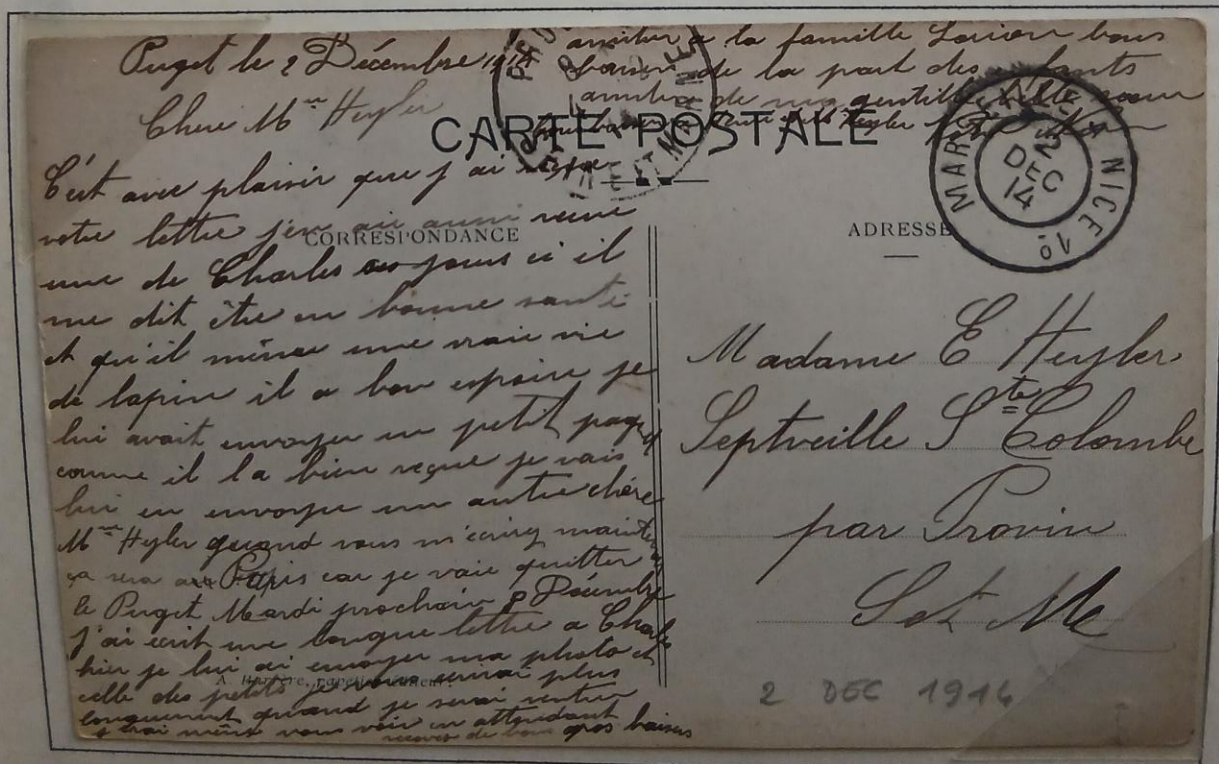 Puget le 2 Décembre 1914
Chere Mme Heyler
CARTE POSTALE
C'est avec plaisir que j'ai reçue
votre lettre j'en ai aussi reçue
une de Charles ces jours ci il
me dit être en bonne santé
et qu'il mène une vraie vie
de lapin il a bon espoire je
lui avait envoyer un petit paquet
comme il la bien reçue je vais
lui en envoyer un autre chère
Mme Heyler quand vous m'écrirez
ça sera à Paris car je vais quitter
le Puget Mardi prochain 8 Décembre
j'ai écrit une longue lettre a Charles
hier je lui ai envoyer ma photo et
celle des petits je vous plus
longuement quand je serai rentrer
j'irai même vous voir en attendant
recevez de bons gros baisers
amitier a la famille bons
baisers de la part des enfants
amitier de ma
CORRESPONDANCE
ADRESSE
MARSEILLE A NICE 1o
2
DEC
14
Madame E Heyler
Septveille Ste Colombe
par Provin
Set Me
2 DEC 1914